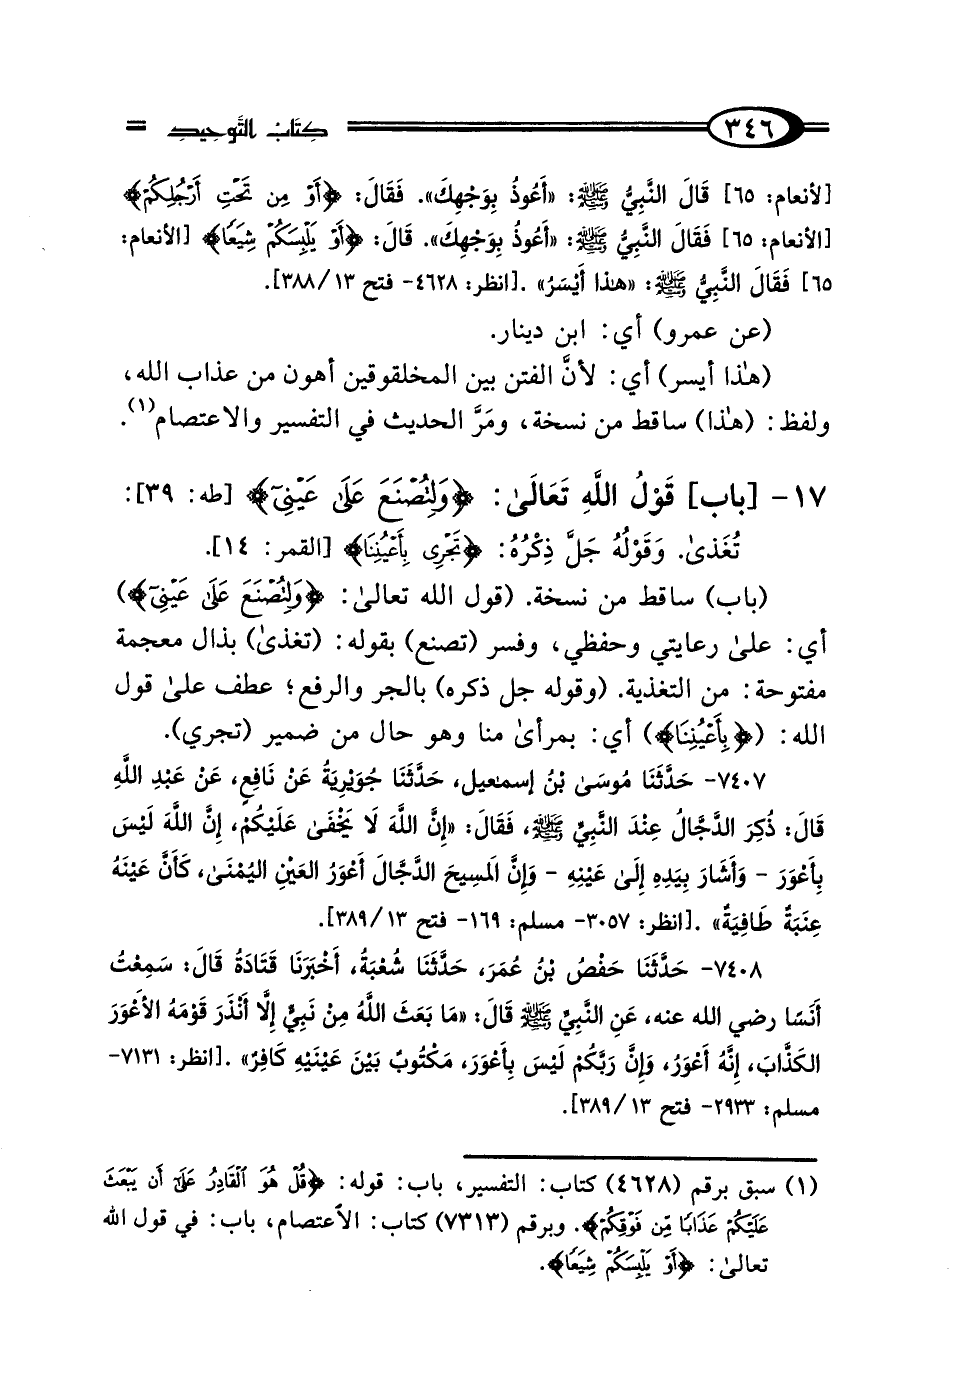 ٣٤٦ كتاب التوحيد
[لأنعام: ٦٥] قَالَ النَّبِيُّ ﷺ: «أَعُوذُ بِوَجْهِكَ». فَقَالَ: ﴿أَوْ مِن تَحْتِ أَرْجُلِكُمْ﴾
[الأنعام: ٦٥] فَقَالَ النَّبِيُّ ﷺ: «أَعُوذُ بِوَجْهِكَ». قَالَ: ﴿أَوْ يَلْبِسَكُمْ شِيَعًا﴾ [الأنعام:
٦٥] فَقَالَ النَّبِيُّ ﷺ: «هذا أَيْسَرُ». [انظر: ٤٦٢٨- فتح ١٣/ ٣٨٨].
(عن عمرو) أي: ابن دينار.
(هذا أيسر) أي: لأنَّ الفتن بين المخلوقين أهون من عذاب الله،
ولفظ: (هذا) ساقط من نسخة، ومَرَّ الحديث في التفسير والاعتصام(١).
١٧- [باب] قَوْلُ اللَّهِ تَعَالَىٰ: ﴿وَلِتُصْنَعَ عَلَىٰ عَيْنِىٓ﴾ [طه: ٣٩]:
تُغَذىٰ. وَقَوْلُهُ جَلَّ ذِكْرُهُ: ﴿تَجْرِى بِأَعْيُنِنَا﴾ [القمر: ١٤].
(باب) ساقط من نسخة. (قول الله تعالىٰ: ﴿وَلِتُصْنَعَ عَلَىٰ عَيْنِىٓ﴾)
أي: علىٰ رعايتي وحفظي، وفسر (تصنع) بقوله: (تغذىٰ) بذال معجمة
مفتوحة: من التغذية. (وقوله جل ذكره) بالجر والرفع؛ عطف علىٰ قول
الله: (﴿بِأَعْيُنِنَا﴾) أي: بمرأىٰ منا وهو حال من ضمير (تجري).
٧٤٠٧- حَدَّثَنَا مُوسَىٰ بْنُ إسمعيل، حَدَّثَنَا جُوَيْرِيَةُ عَنْ نَافِعٍ، عَنْ عَبْدِ اللَّهِ
قَالَ: ذُكِرَ الدَّجَّالُ عِنْدَ النَّبِيِّ ﷺ، فَقَالَ: «إِنَّ اللَّهَ لَا يَخْفَىٰ عَلَيْكُمْ، إِنَّ اللَّهَ لَيْسَ
بِأَعْوَرَ - وَأَشَارَ بِيَدِهِ إِلَىٰ عَيْنِهِ - وَإِنَّ المَسِيحَ الدَّجَّالَ أَعْوَرُ العَيْنِ اليُمْنَىٰ، كَأَنَّ عَيْنَهُ
عِنَبَةٌ طَافِيَةٌ». [انظر: ٣٠٥٧- مسلم: ١٦٩- فتح ١٣/ ٣٨٩].
٧٤٠٨- حَدَّثَنَا حَفْصُ بْنُ عُمَرَ، حَدَّثَنَا شُعْبَةُ، أَخْبَرَنَا قَتَادَةُ قَالَ: سَمِعْتُ
أَنَسًا رضي الله عنه، عَنِ النَّبِيِّ ﷺ قَالَ: «مَا بَعَثَ اللَّهُ مِنْ نَبِيٍّ إِلَّا أَنْذَرَ قَوْمَهُ الأَعْوَرَ
الكَذَّابَ، إِنَّهُ أَعْوَرُ، وَإِنَّ رَبَّكُمْ لَيْسَ بِأَعْوَرَ، مَكْتُوبٌ بَيْنَ عَيْنَيْهِ كَافِرٌ». [انظر: ٧١٣١-
مسلم: ٢٩٣٣- فتح ١٣/ ٣٨٩].
(١) سبق برقم (٤٦٢٨) كتاب: التفسير، باب: قوله: ﴿قُلْ هُوَ ٱلْقَادِرُ عَلَىٰٓ أَن يَبْعَثَ
عَلَيْكُمْ عَذَابًا مِّن فَوْقِكُمْ﴾. وبرقم (٧٣١٣) كتاب: الأعتصام، باب: في قول الله
تعالىٰ: ﴿أَوْ يَلْبِسَكُمْ شِيَعًا﴾.